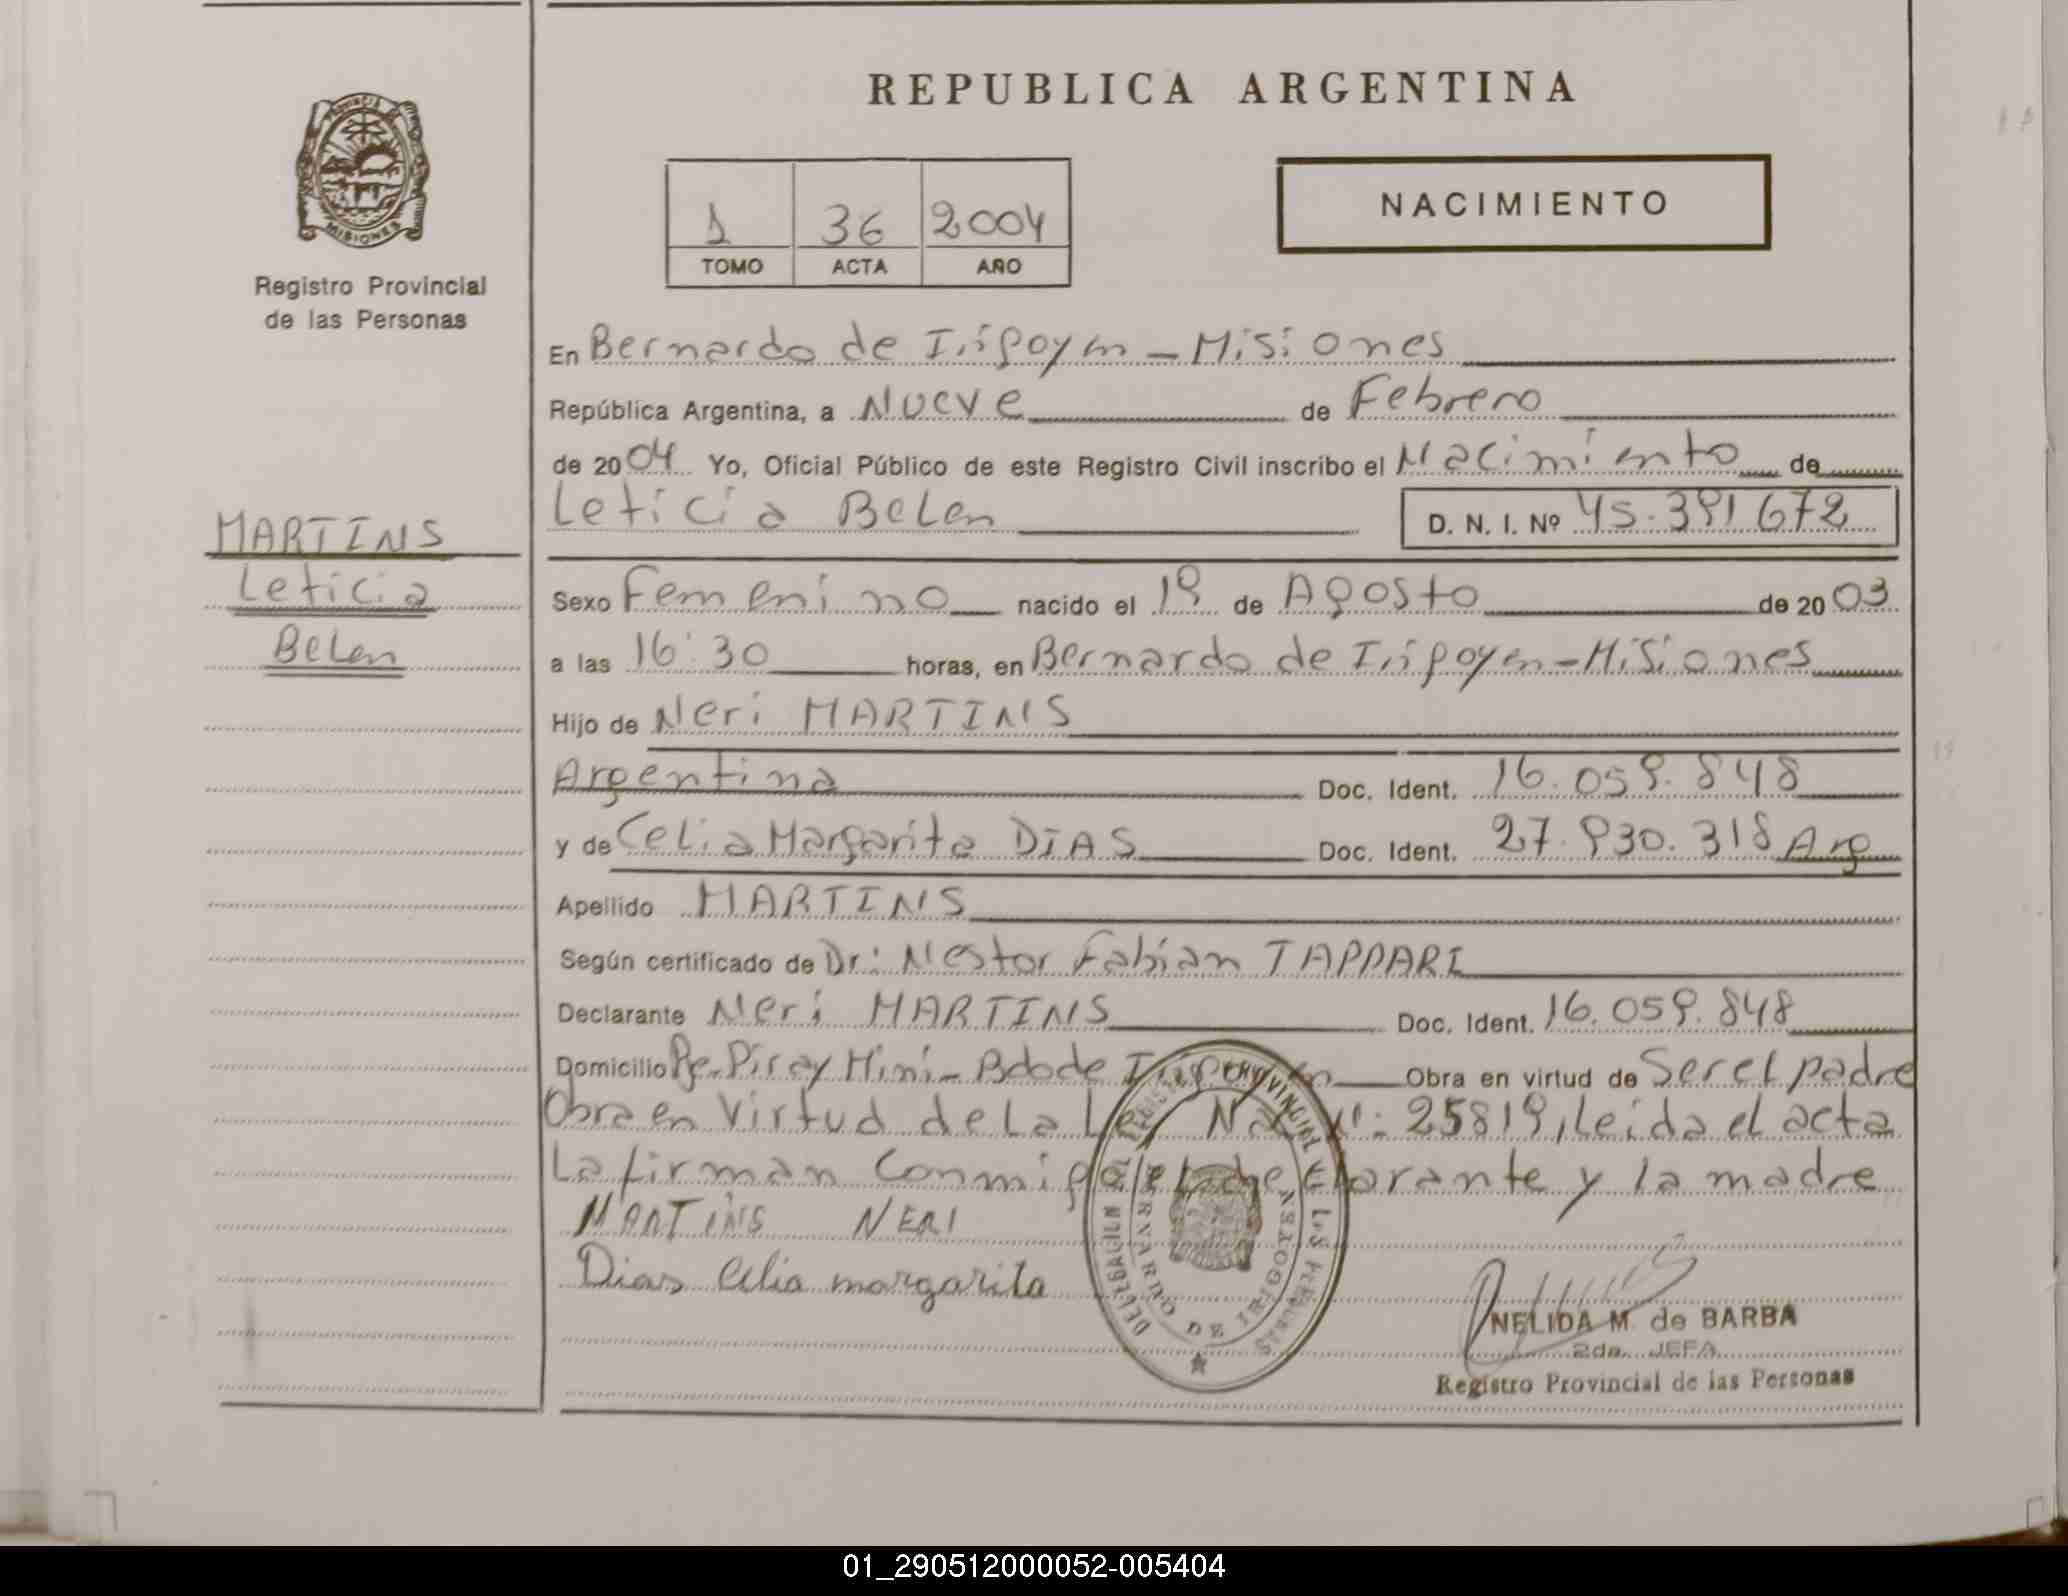 REPUBLICA ARGENTINA
PROVINCIA DE
MISIONES
Registro Provincial
de las Personas
1 36 2004
TOMO ACTA AÑO
NACIMIENTO
En Bernardo de Irigoyen - Misiones
República Argentina, a Nueve de Febrero
de 2004 Yo, Oficial Público de este Registro Civil inscribo el Nacimiento de
Leticia Belen D. N. I. Nº 45.391672
MARTINS
Leticia
Belen
Sexo Femenino nacido el 19 de Agosto de 2003
a las 16:30 horas, en Bernardo de Irigoyen - Misiones
Hijo de Neri MARTINS
Argentina Doc. Ident. 16.059.848
y de Celia Margarita DIAS Doc. Ident. 27.930.318 Arg
Apellido MARTINS
Según certificado de Dr: Nestor Fabian TAPPARI
Declarante Neri MARTINS Doc. Ident. 16.059.848
Domicilio Pje. Piray Mini - Bdo de Irigoyen Obra en virtud de Ser el padre
Obra en Virtud de la Ley Nac Nº: 25819, Leida el acta
La firman Conmigo el declarante y la madre
MARTINS NERI
Dias Celia margarita
REGISTRO PROVINCIAL DE LAS PERSONAS
DELEGACION
BERNARDO DE IRIGOYEN
NELIDA M. de BARBA
2da. JEFA
Registro Provincial de las Personas
01_290512000052-005404